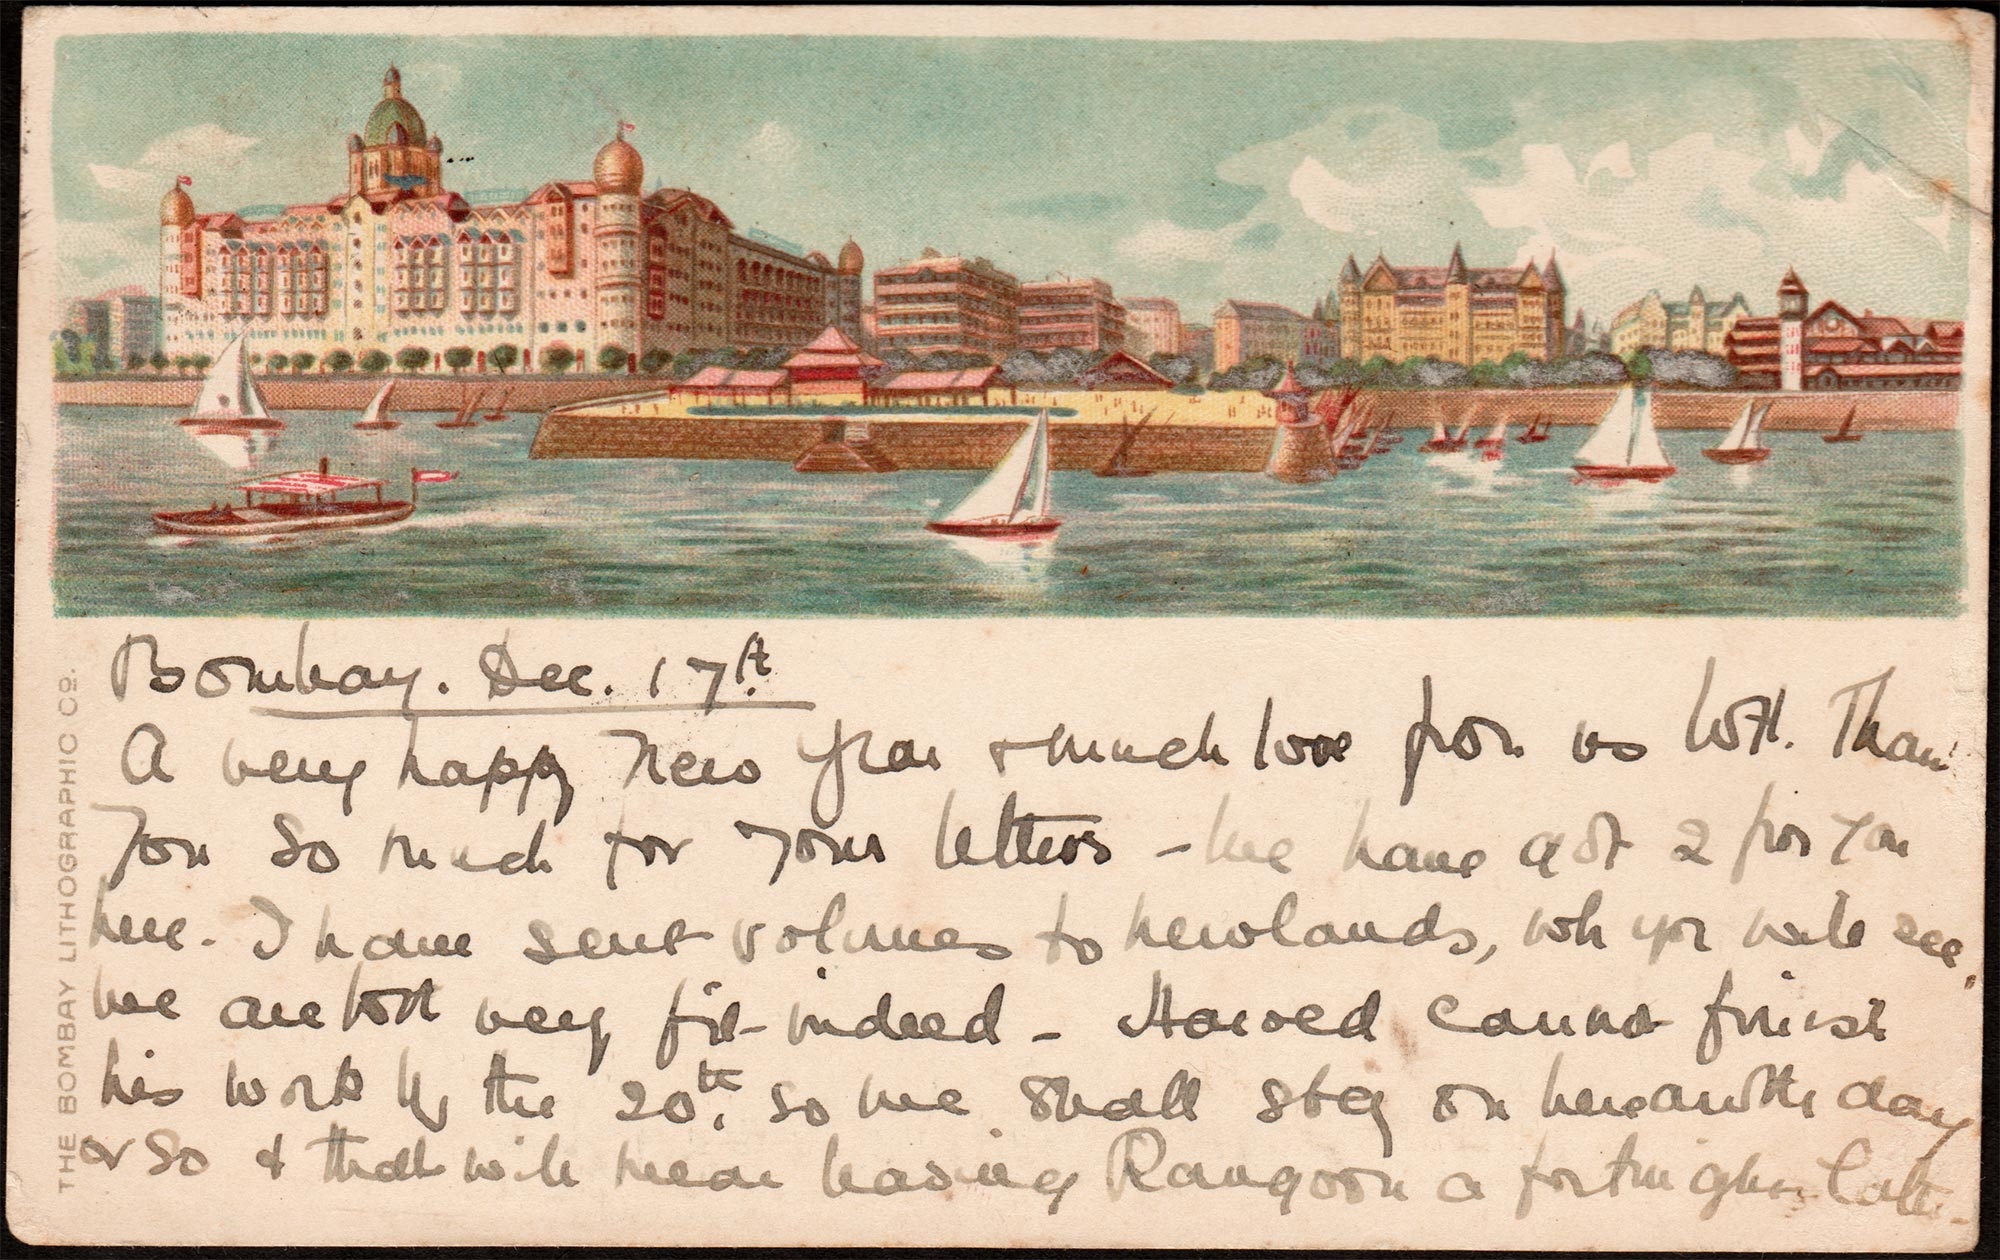 THE BOMBAY LITHOGRAPHIC CO.
Bombay. Dec. 17th
A very happy New Year & much love from us both. Thank
you so much for your letters - we have got 2 from you
here. I have sent volumes to Newlands, wh you will see.
We are both very fit indeed - Harold cannot finish
his work by the 20th, so we shall stay on here another day
or so & that will mean leaving Rangoon a fortnight later.